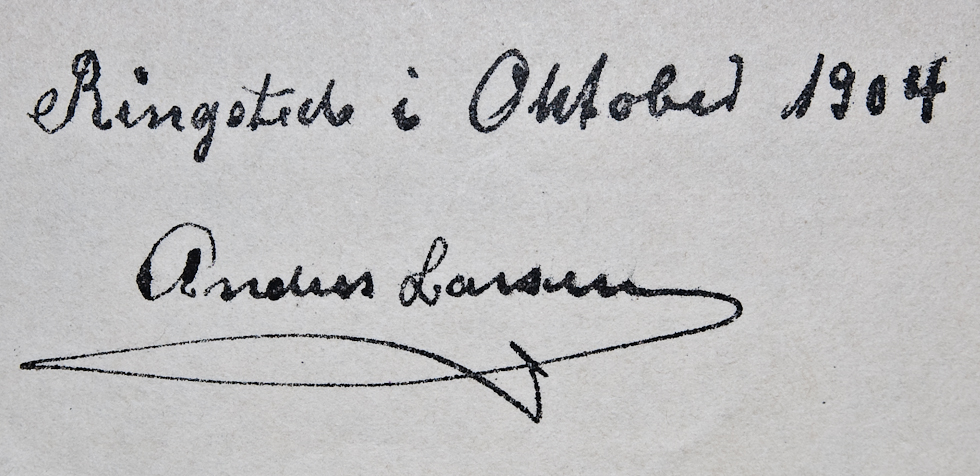 Ringsted i Oktober 1904
Anders Larsen